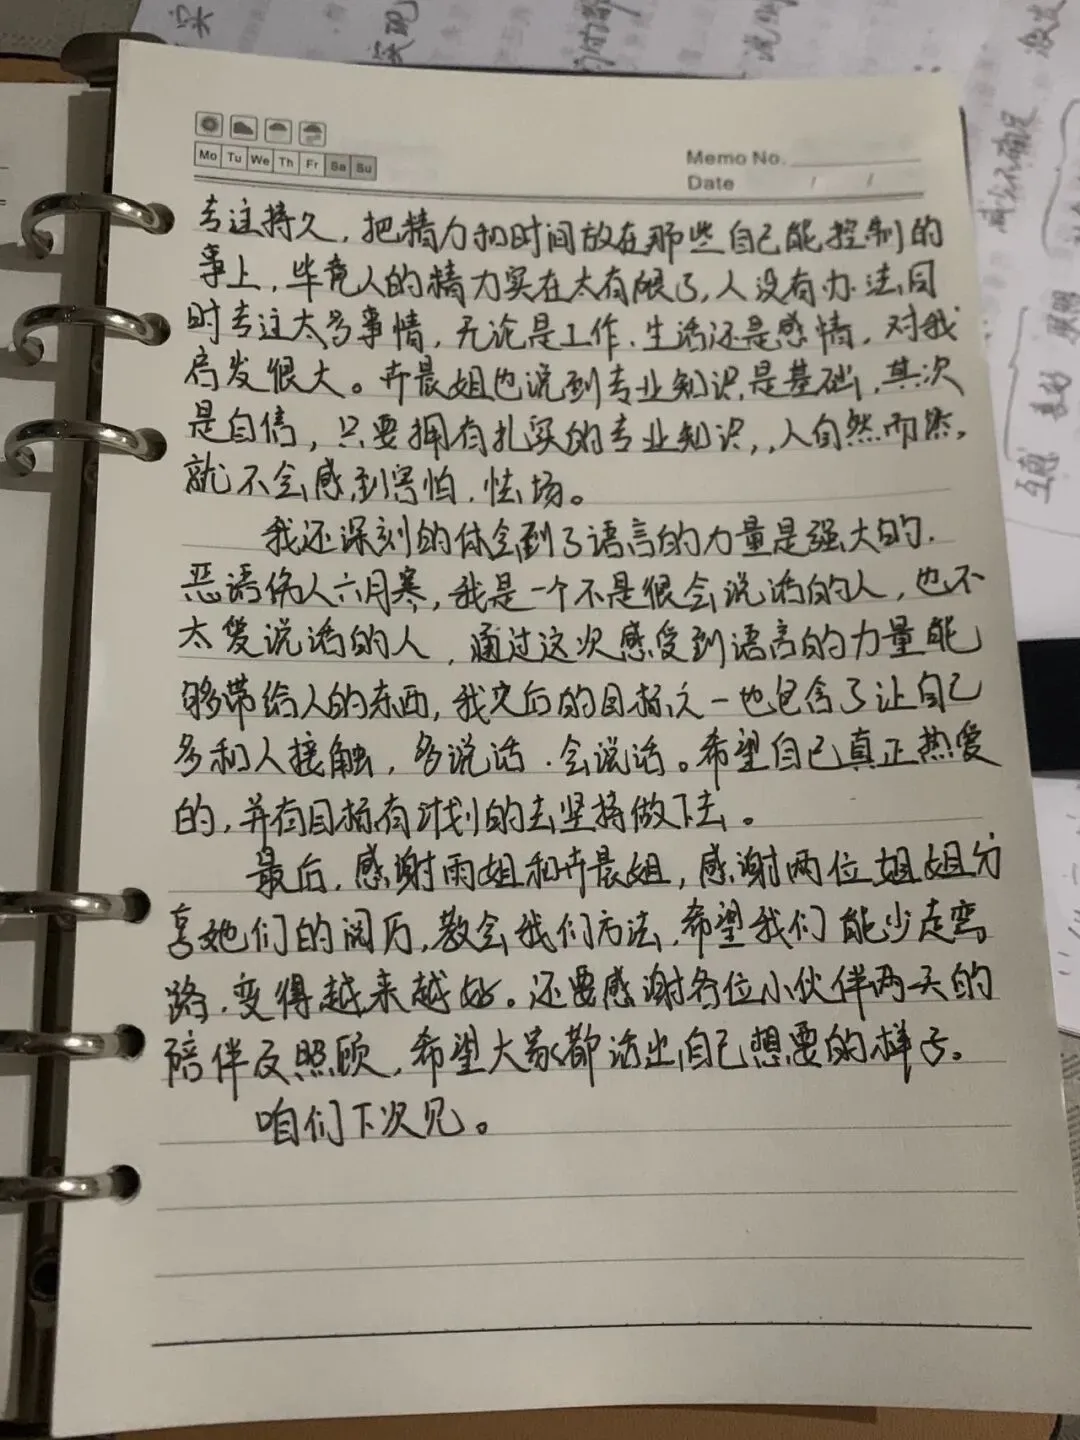 Mo Tu We Th Fr Sa Su
Memo No.
Date / /
专注持久，把精力和时间放在那些自己能控制的
事上，毕竟人的精力实在太有限了，人没有办法同
时专注太多事情，无论是工作、生活还是感情，对我
启发很大。卉晨姐也说到专业知识是基础，其次
是自信，只要拥有扎实的专业知识，，人自然而然，
就不会感到害怕、怯场。
我还深刻的体会到了语言的力量是强大的，
恶语伤人六月寒，我是一个不是很会说话的人，也不
太爱说话的人，通过这次感受到语言的力量能
够带给人的东西，我之后的目标之一也包含了让自己
多和人接触，多说话，会说话。希望自己真正热爱
的，并有目标有计划的去坚持做下去。
最后，感谢雨姐和卉晨姐，感谢两位姐姐分
享她们的阅历，教会我们方法，希望我们能少走弯
路，变得越来越好。还要感谢各位小伙伴两天的
陪伴及照顾，希望大家都活出自己想要的样子。
咱们下次见。